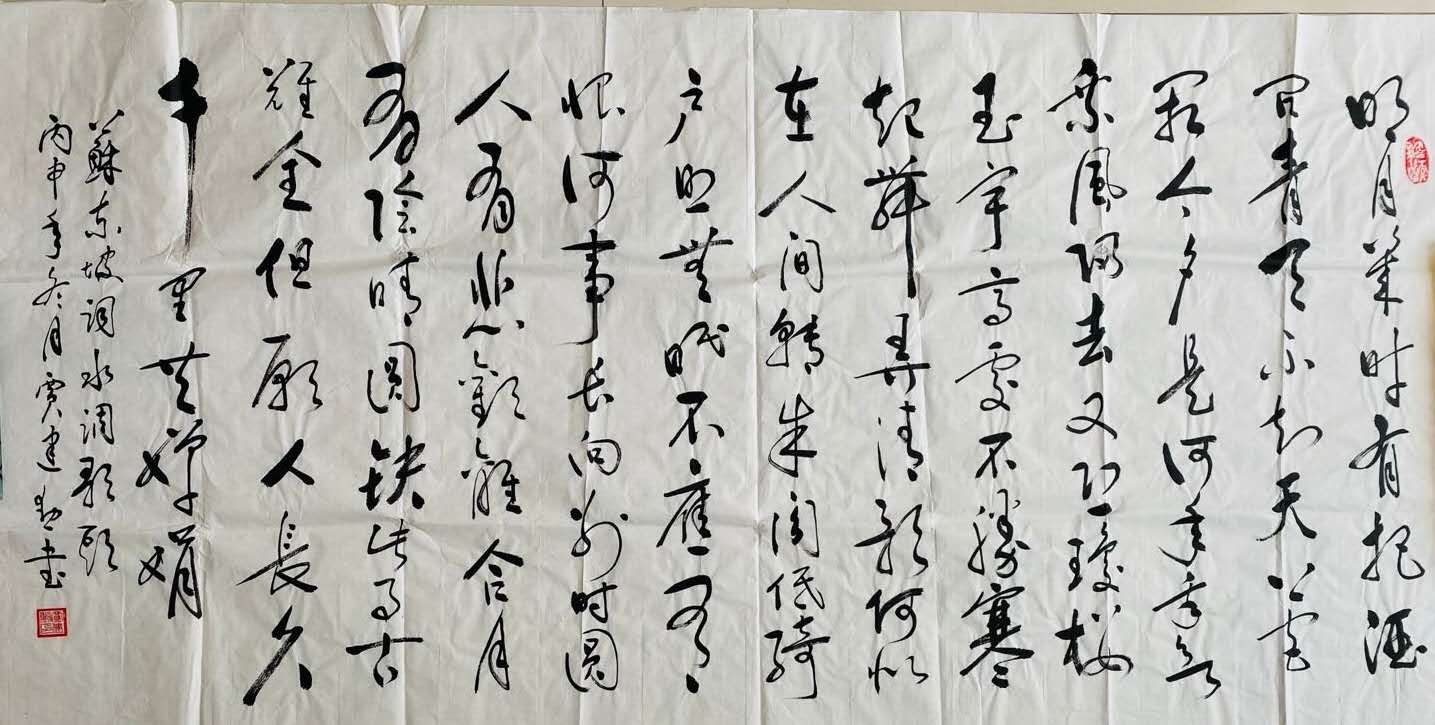 明月幾时有把酒
问青天不知天上宫
阙今夕是何年我欲
乘風归去又恐瓊楼
玉宇高處不勝寒
起舞弄清影何似
在人间轉朱阁低綺
户照無眠不應有
恨何事长向别时圆
人有悲歡離合月
有陰晴圆缺此事古
難全但願人長久
千里共嬋娟
蘇东坡词水调歌頭
丙申年冬月贾建书